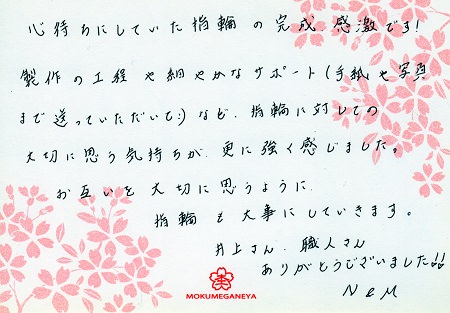 心待ちにしていた指輪の完成 感激です!
製作の工程や細やかなサポート(手紙や写真
まで送っていただいて:)など、指輪に対しての
大切に思う気持ちが、更に強く感じました。
お互いを大切に思うように、
指輪も大事にしていきます。
井上さん、職人さん
ありがとうございました!!
N&M
MOKUMEGANEYA